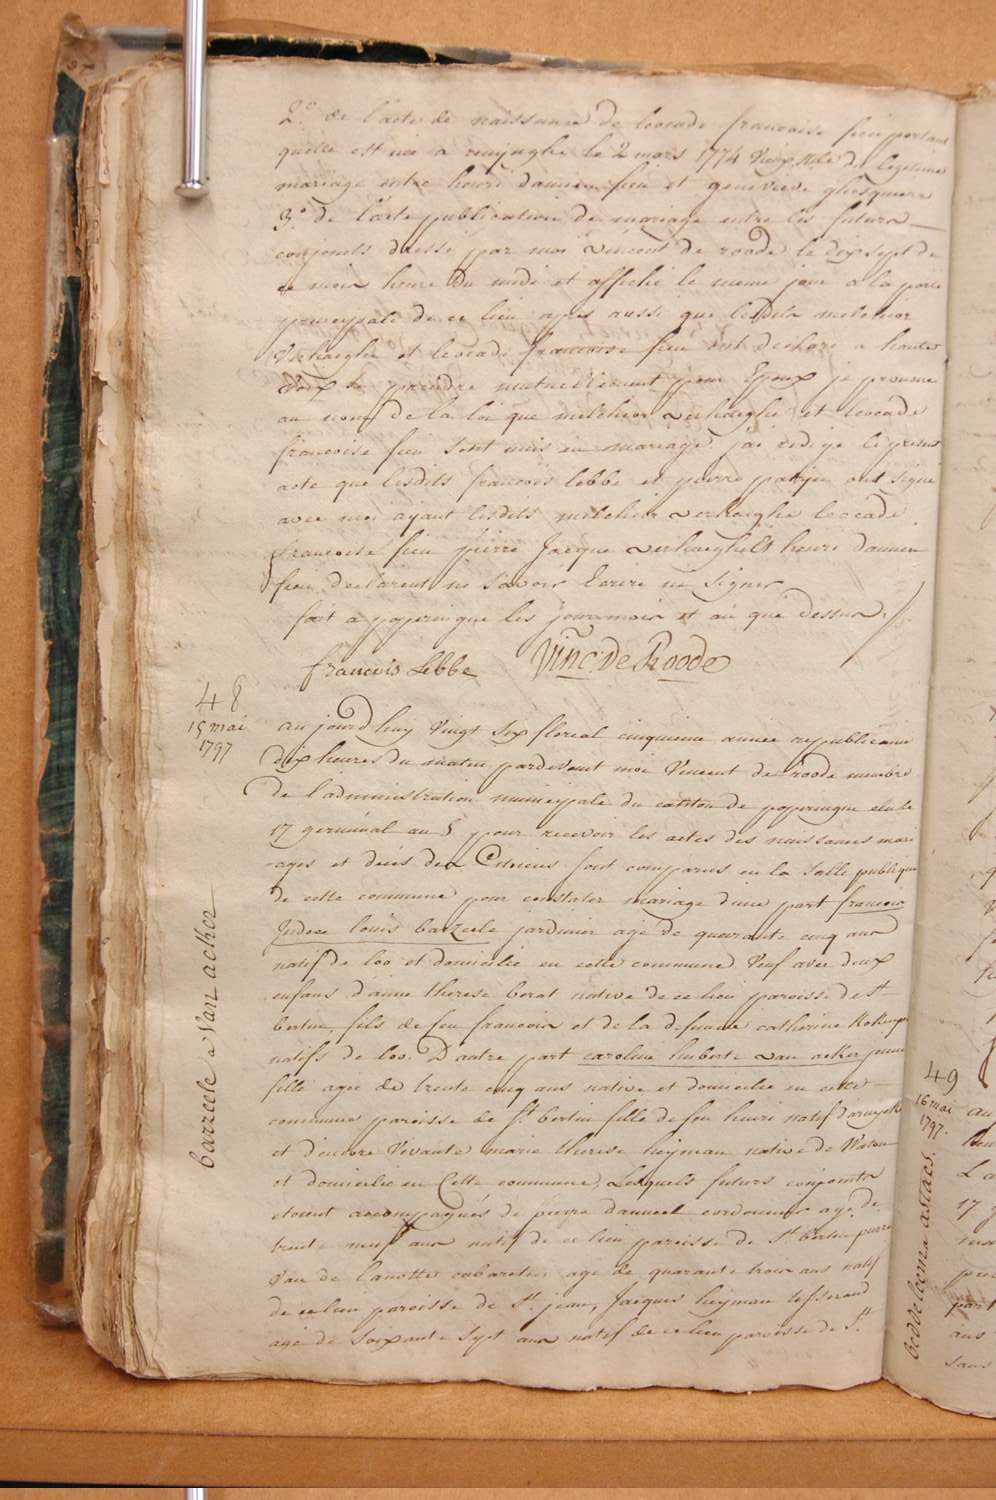 2.° de l'acte de naissance de leocade francoise fieu portant
quelle est née a le 2 mars 1774 de legitime
mariage entre henri damien fieu et genevieve ghesquiere
3.° de l'acte publication de mariage entre les futurs
conjoints dressé par moi vincent de roode le dix sept de
ce mois heure du midi et affiché le meme jour a la porte
principale de ce lieu apes aussi que lesdits melchior
Verhaeghe et leocade francoise fieu ont declaré a haute
Voix se prendre mutuellement pour Epoux je prononce
au nom de la loi que melchior verhaeghe et leocade
francoise fieu sont unis en mariage j'ai redigé le present
acte que lesdits francois lebbe et pierre ont signé
avec moi ajant lesdits melchior verhaeghe leocade
francoise fieu pierre Jacque verhaeghe Et henri damien
fieu declarent ne savoir Ecrire ne signer
fait a poperingue les jour mois et an que dessus ./.
francois Lebbe Vinc: De Roode
48
15 mai
1797
barzeele a Van acker
aujourd'huy Vingt six floreal cinquieme annee republicaine
dix heures du matin pardevant moi Vincent de roode membre
de l'administration municipale du canton de poperingue elu le
17 germinal an 5 pour recevoir les actes des naissances mari
-ages et décés des Citoiens sont comparus en la salle publique
de cette commune pour constater mariage d'une part francois
Judoce louis barzeele jardinier agé de quarante cinq ans
natif de loo et domicilié en cette commune Veuf avec deux
enfans d'anne therese borat native de ce lieu paroisse de st
bertin, fils de feu francois et de la defunte catherine
natifs de loo. D'autre part caroline huberte van acker jeune
fille agee de trente cinq ans native et domicilié en cette
commune paroisse de st bertin fille de feu henri natif
et d'encore Vivante marie therese heyman native de Watou
et domicilié en Cette commune, Lesquels futurs conjoints
etoient accompagnés de pierre danneel cordonnier agé de
trente neuf ans natif de ce lieu paroisse de St bertin pierre
Van de lanotte cabaretier agé de quarante trois ans natif
de ce lieu paroisse de St. jean, Jacques heyman tisserand
agé de soixante sept ans natif de ce lieu paroisse de St.
49
16 mai
1797.
boddeleeme a staes.
au
17
part
ans